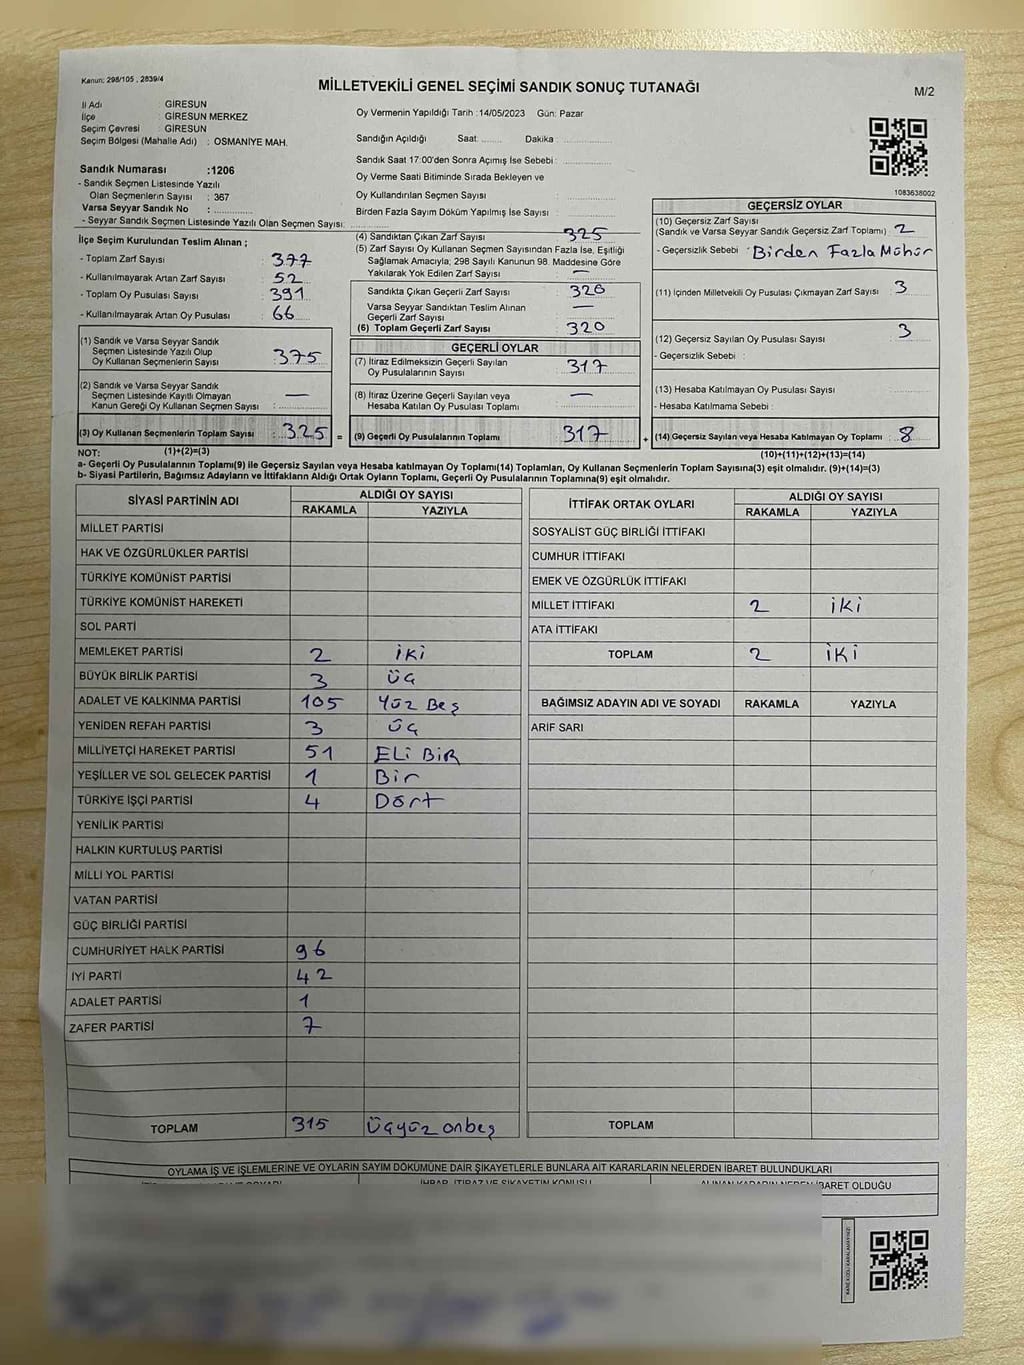 Kanun: 298/105 , 2839/4
MİLLETVEKİLİ GENEL SEÇİMİ SANDIK SONUÇ TUTANAĞI
M/2
İl Adı : GİRESUN
İlçe : GİRESUN MERKEZ
Seçim Çevresi : GİRESUN
Seçim Bölgesi (Mahalle Adı) : OSMANİYE MAH.
Oy Vermenin Yapıldığı Tarih :14/05/2023 Gün: Pazar
Sandığın Açıldığı Saat: ........ Dakika : ................
Sandık Saat 17:00'den Sonra Açımış İse Sebebi : ................
Oy Verme Saati Bitiminde Sırada Bekleyen ve
Oy Kullandırılan Seçmen Sayısı ................
Birden Fazla Sayım Döküm Yapılmış İse Sayısı ................
Sandık Numarası :1206
- Sandık Seçmen Listesinde Yazılı
Olan Seçmenlerin Sayısı : 367
Varsa Seyyar Sandık No : ............
- Seyyar Sandık Seçmen Listesinde Yazılı Olan Seçmen Sayısı: ............
1083638002
İlçe Seçim Kurulundan Teslim Alınan ;
- Toplam Zarf Sayısı : 377
- Kullanılmayarak Artan Zarf Sayısı : 52
- Toplam Oy Pusulası Sayısı : 391
- Kullanılmayarak Artan Oy Pusulası : 66
(1) Sandık ve Varsa Seyyar Sandık
Seçmen Listesinde Yazılı Olup
Oy Kullanan Seçmenlerin Sayısı : 375
(2) Sandık ve Varsa Seyyar Sandık
Seçmen Listesinde Kayıtlı Olmayan
Kanun Gereği Oy Kullanan Seçmen Sayısı : —
(3) Oy Kullanan Seçmenlerin Toplam Sayısı : 325 =
(1)+(2)=(3)
(4) Sandıktan Çıkan Zarf Sayısı 325
(5) Zarf Sayısı Oy Kullanan Seçmen Sayısından Fazla İse, Eşitliği
Sağlamak Amacıyla; 298 Sayılı Kanunun 98. Maddesine Göre
Yakılarak Yok Edilen Zarf Sayısı —
Sandıkta Çıkan Geçerli Zarf Sayısı : 320
Varsa Seyyar Sandıktan Teslim Alınan —
Geçerli Zarf Sayısı
(6) Toplam Geçerli Zarf Sayısı : 320
GEÇERLİ OYLAR
(7) İtiraz Edilmeksizin Geçerli Sayılan
Oy Pusulalarının Sayısı : 317
(8) İtiraz Üzerine Geçerli Sayılan veya —
Hesaba Katılan Oy Pusulası Toplamı
(9) Geçerli Oy Pusulalarının Toplamı : 317 +
GEÇERSİZ OYLAR
(10) Geçersiz Zarf Sayısı
(Sandık ve Varsa Seyyar Sandık Geçersiz Zarf Toplamı) : 2
- Geçersizlik Sebebi : Birden Fazla Mühür
(11) İçinden Milletvekili Oy Pusulası Çıkmayan Zarf Sayısı : 3
(12) Geçersiz Sayılan Oy Pusulası Sayısı : 3
- Geçersizlik Sebebi :
(13) Hesaba Katılmayan Oy Pusulası Sayısı
- Hesaba Katılmama Sebebi :
(14) Geçersiz Sayılan veya Hesaba Katılmayan Oy Toplamı : 8
(10)+(11)+(12)+(13)=(14)
NOT:
a- Geçerli Oy Pusulalarının Toplamı(9) ile Geçersiz Sayılan veya Hesaba katılmayan Oy Toplamı(14) Toplamları, Oy Kullanan Seçmenlerin Toplam Sayısına(3) eşit olmalıdır. (9)+(14)=(3)
b- Siyasi Partilerin, Bağımsız Adayların ve İttifakların Aldığı Ortak Oyların Toplamı, Geçerli Oy Pusulalarının Toplamına(9) eşit olmalıdır.
SİYASİ PARTİNİN ADI ALDIĞI OY SAYISI
RAKAMLA YAZIYLA
MİLLET PARTİSİ
HAK VE ÖZGÜRLÜKLER PARTİSİ
TÜRKİYE KOMÜNİST PARTİSİ
TÜRKİYE KOMÜNİST HAREKETİ
SOL PARTİ
MEMLEKET PARTİSİ 2 iki
BÜYÜK BİRLİK PARTİSİ 3 üç
ADALET VE KALKINMA PARTİSİ 105 Yüz Beş
YENİDEN REFAH PARTİSİ 3 üç
MİLLİYETÇİ HAREKET PARTİSİ 51 ELİ BİR
YEŞİLLER VE SOL GELECEK PARTİSİ 1 Bir
TÜRKİYE İŞÇİ PARTİSİ 4 Dört
YENİLİK PARTİSİ
HALKIN KURTULUŞ PARTİSİ
MİLLİ YOL PARTİSİ
VATAN PARTİSİ
GÜÇ BİRLİĞİ PARTİSİ
CUMHURİYET HALK PARTİSİ 96
İYİ PARTİ 42
ADALET PARTİSİ 1
ZAFER PARTİSİ 7
TOPLAM 315 üçyüz onbeş
İTTİFAK ORTAK OYLARI ALDIĞI OY SAYISI
RAKAMLA YAZIYLA
SOSYALİST GÜÇ BİRLİĞİ İTTİFAKI
CUMHUR İTTİFAKI
EMEK VE ÖZGÜRLÜK İTTİFAKI
MİLLET İTTİFAKI 2 iki
ATA İTTİFAKI
TOPLAM 2 iki
BAĞIMSIZ ADAYIN ADI VE SOYADI RAKAMLA YAZIYLA
ARİF SARI
TOPLAM
OYLAMA İŞ VE İŞLEMLERİNE VE OYLARIN SAYIM DÖKÜMÜNE DAİR ŞİKAYETLERLE BUNLARA AİT KARARLARIN NELERDEN İBARET BULUNDUKLARI
İHBAR, İTİRAZ VE ŞİKAYETİN KONUSU ALINAN KARARIN NEDEN İBARET OLDUĞU